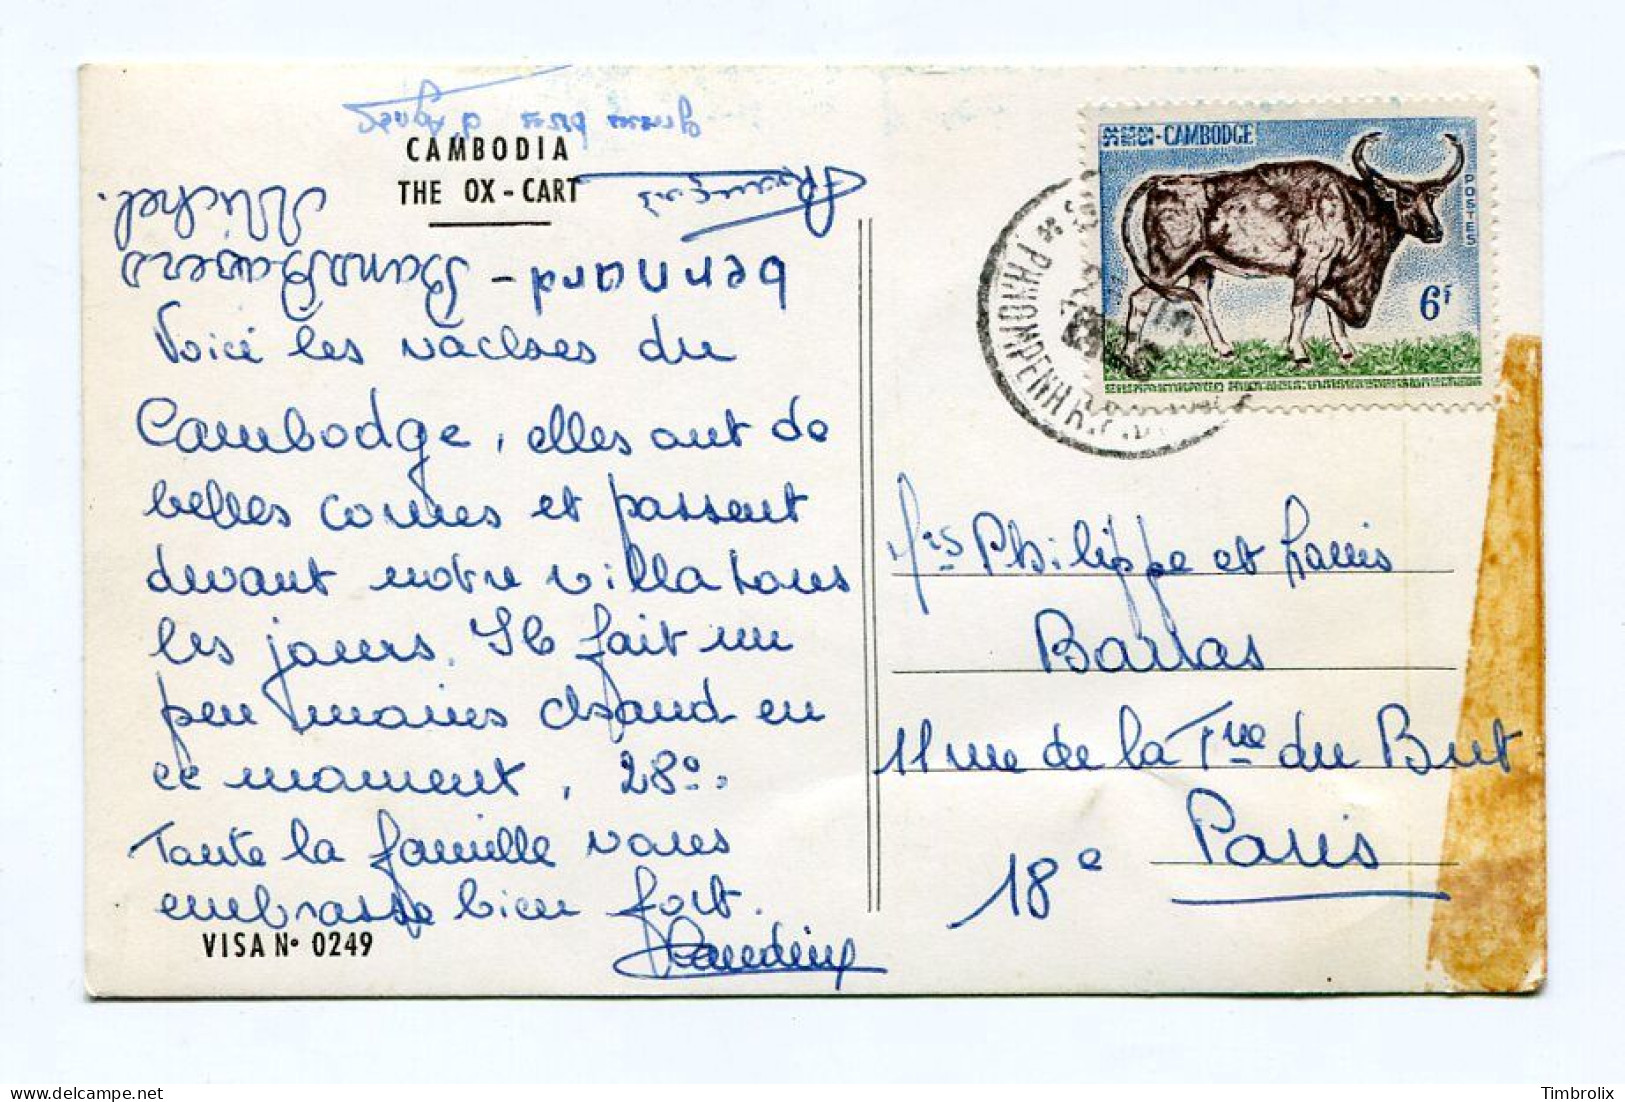 gros bisous d'Agnès
CAMBODIA
THE OX-CART
François
Michel.
bernard - Bons Baisers
Voici les vaches du
Cambodge, elles ont de
belles cornes et passent
devant notre villa tous
les jours. Il fait un
peu moins chaud en
ce moment, 28°.
Toute la famille vous
embrasse bien fort.
Claudine
VISA N° 0249
CAMBODGE
POSTES
6F
PHNOMPENH R.P.
Mrs Philippe et Louis
Barras
11 rue de la Fne du But
Paris
18e
Timbrolix